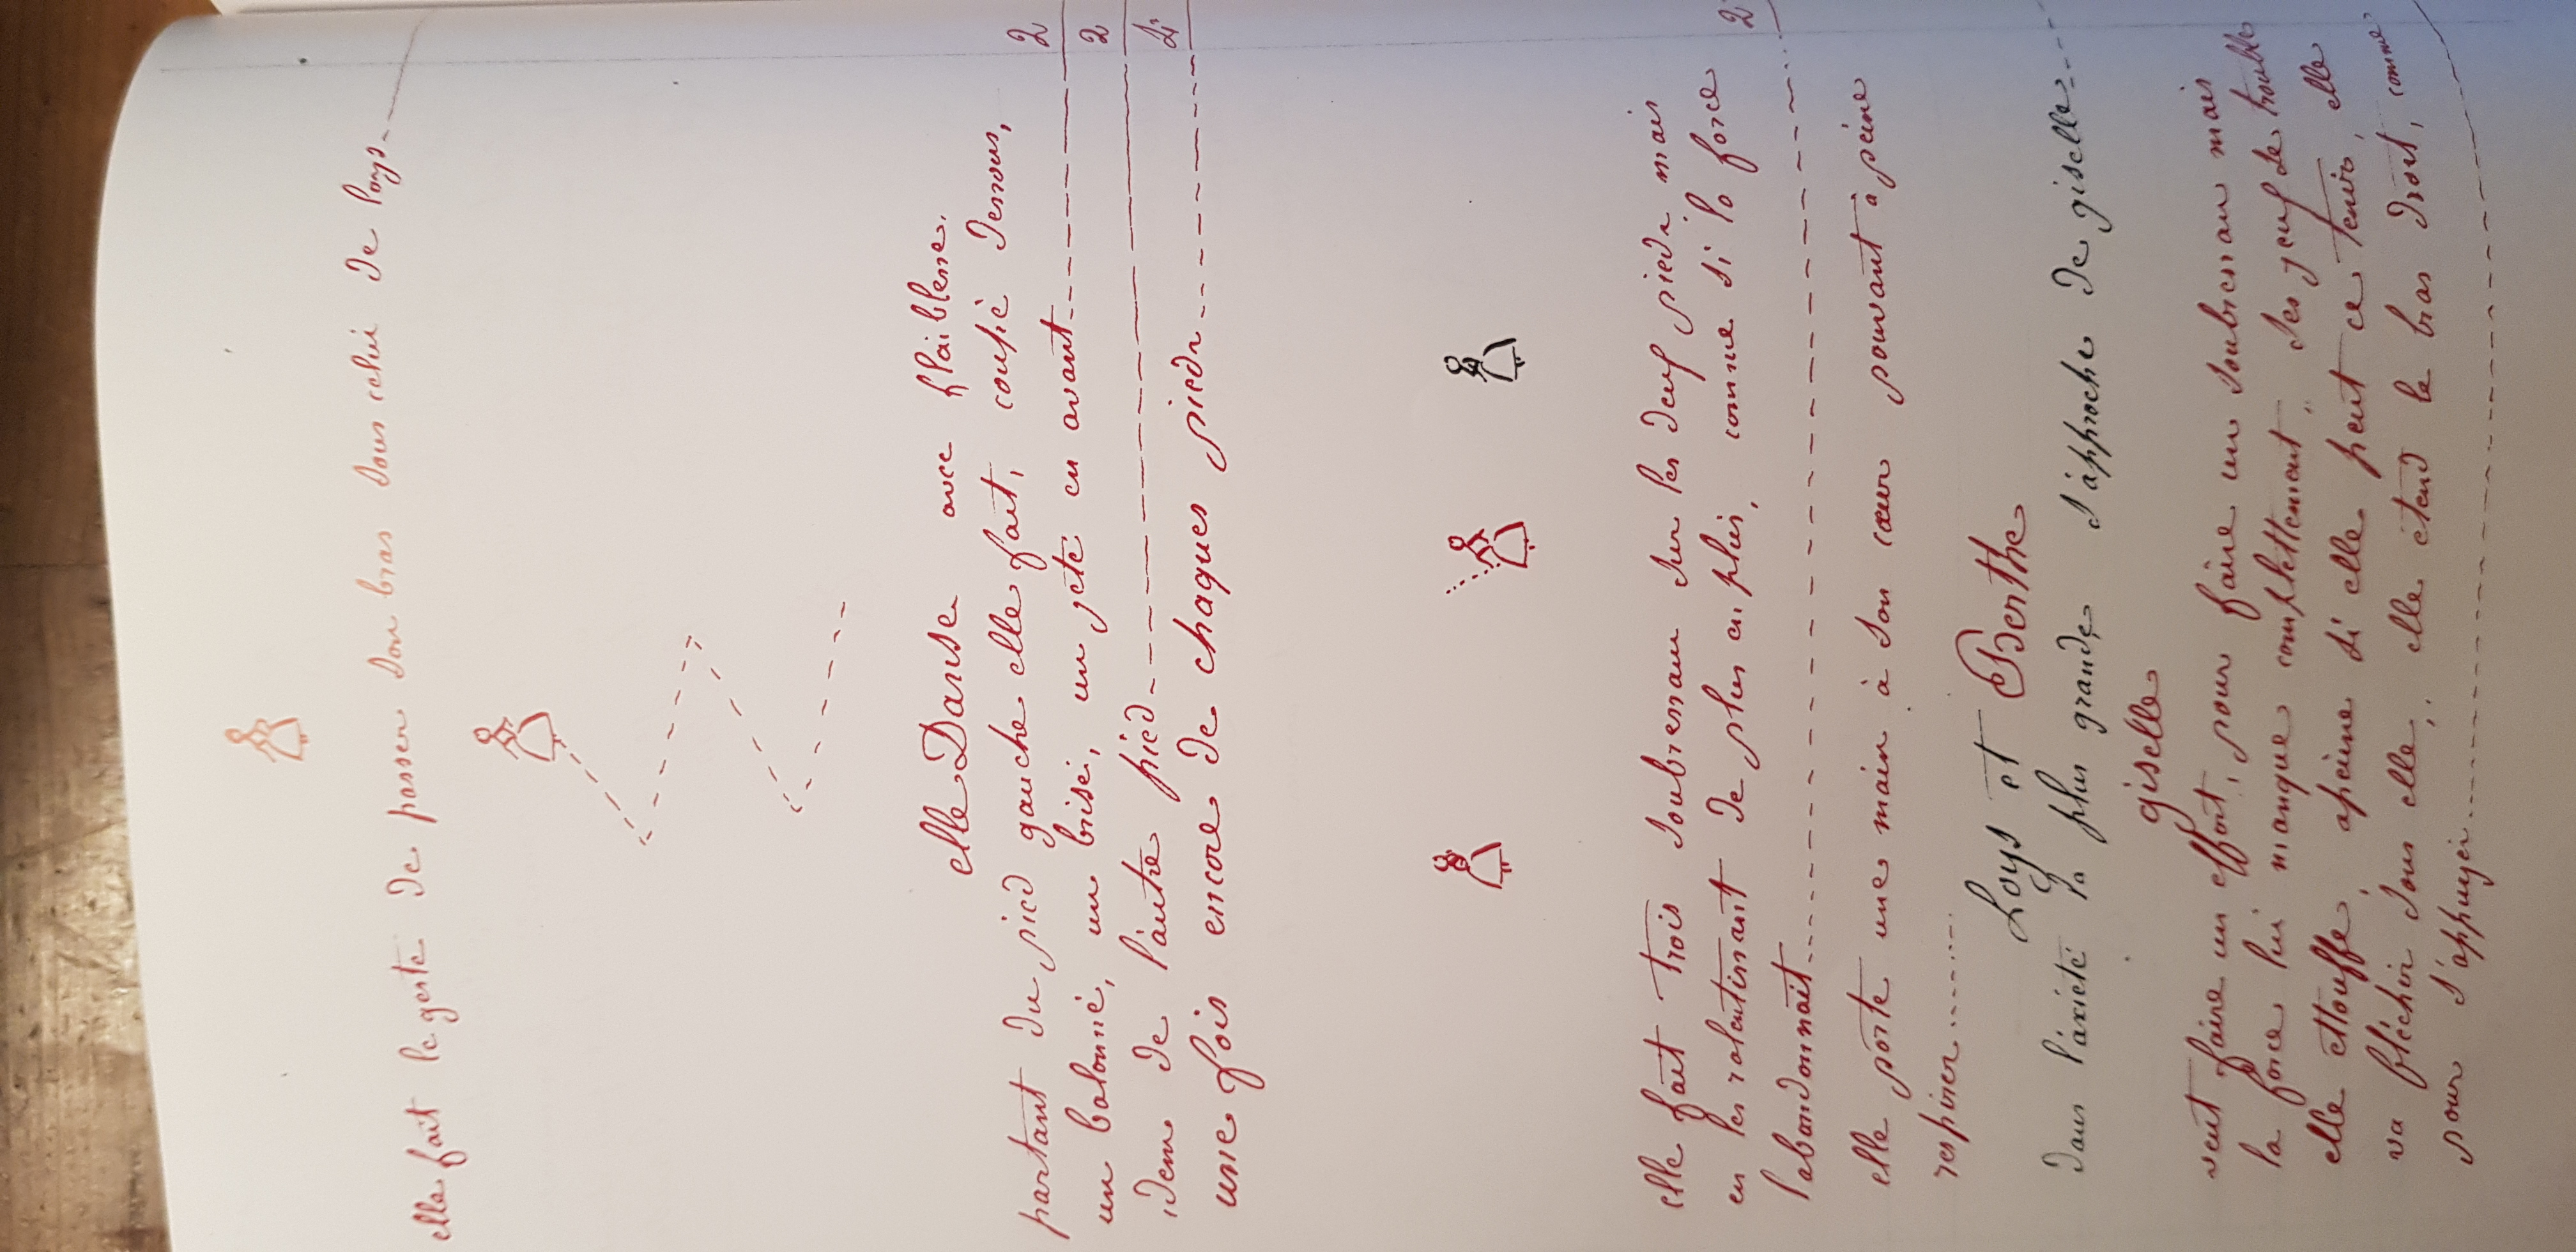 elle fait le geste de passer son bras sous celui de Loys
elle Danse avec flaiblene.
partant du pied gauche elle fait, coupé dessous, 2
un balonné, un brisé, un jeté en avant 2
idem de l'autre pied 4
une fois encore de chaques pieds
elle fait trois soubresau sur les deux pieds mais
en les ralentissant de plus en plus, comme si la force 2
l'abandonnait
elle porte une main à son cœur pouvant à peine
respirer
Loys et Berthe
dans l'axieté la plus grande s'approche de giselle
giselle
veut faire un effort, pour faire un soubresau mais
la force lui manque complettement, ses yeux se trouble
elle ettouffe, apeine si elle peut ce tenir, elle
va fléchir sous elle, elle étend le bras droit, comme
pour s'appuyer